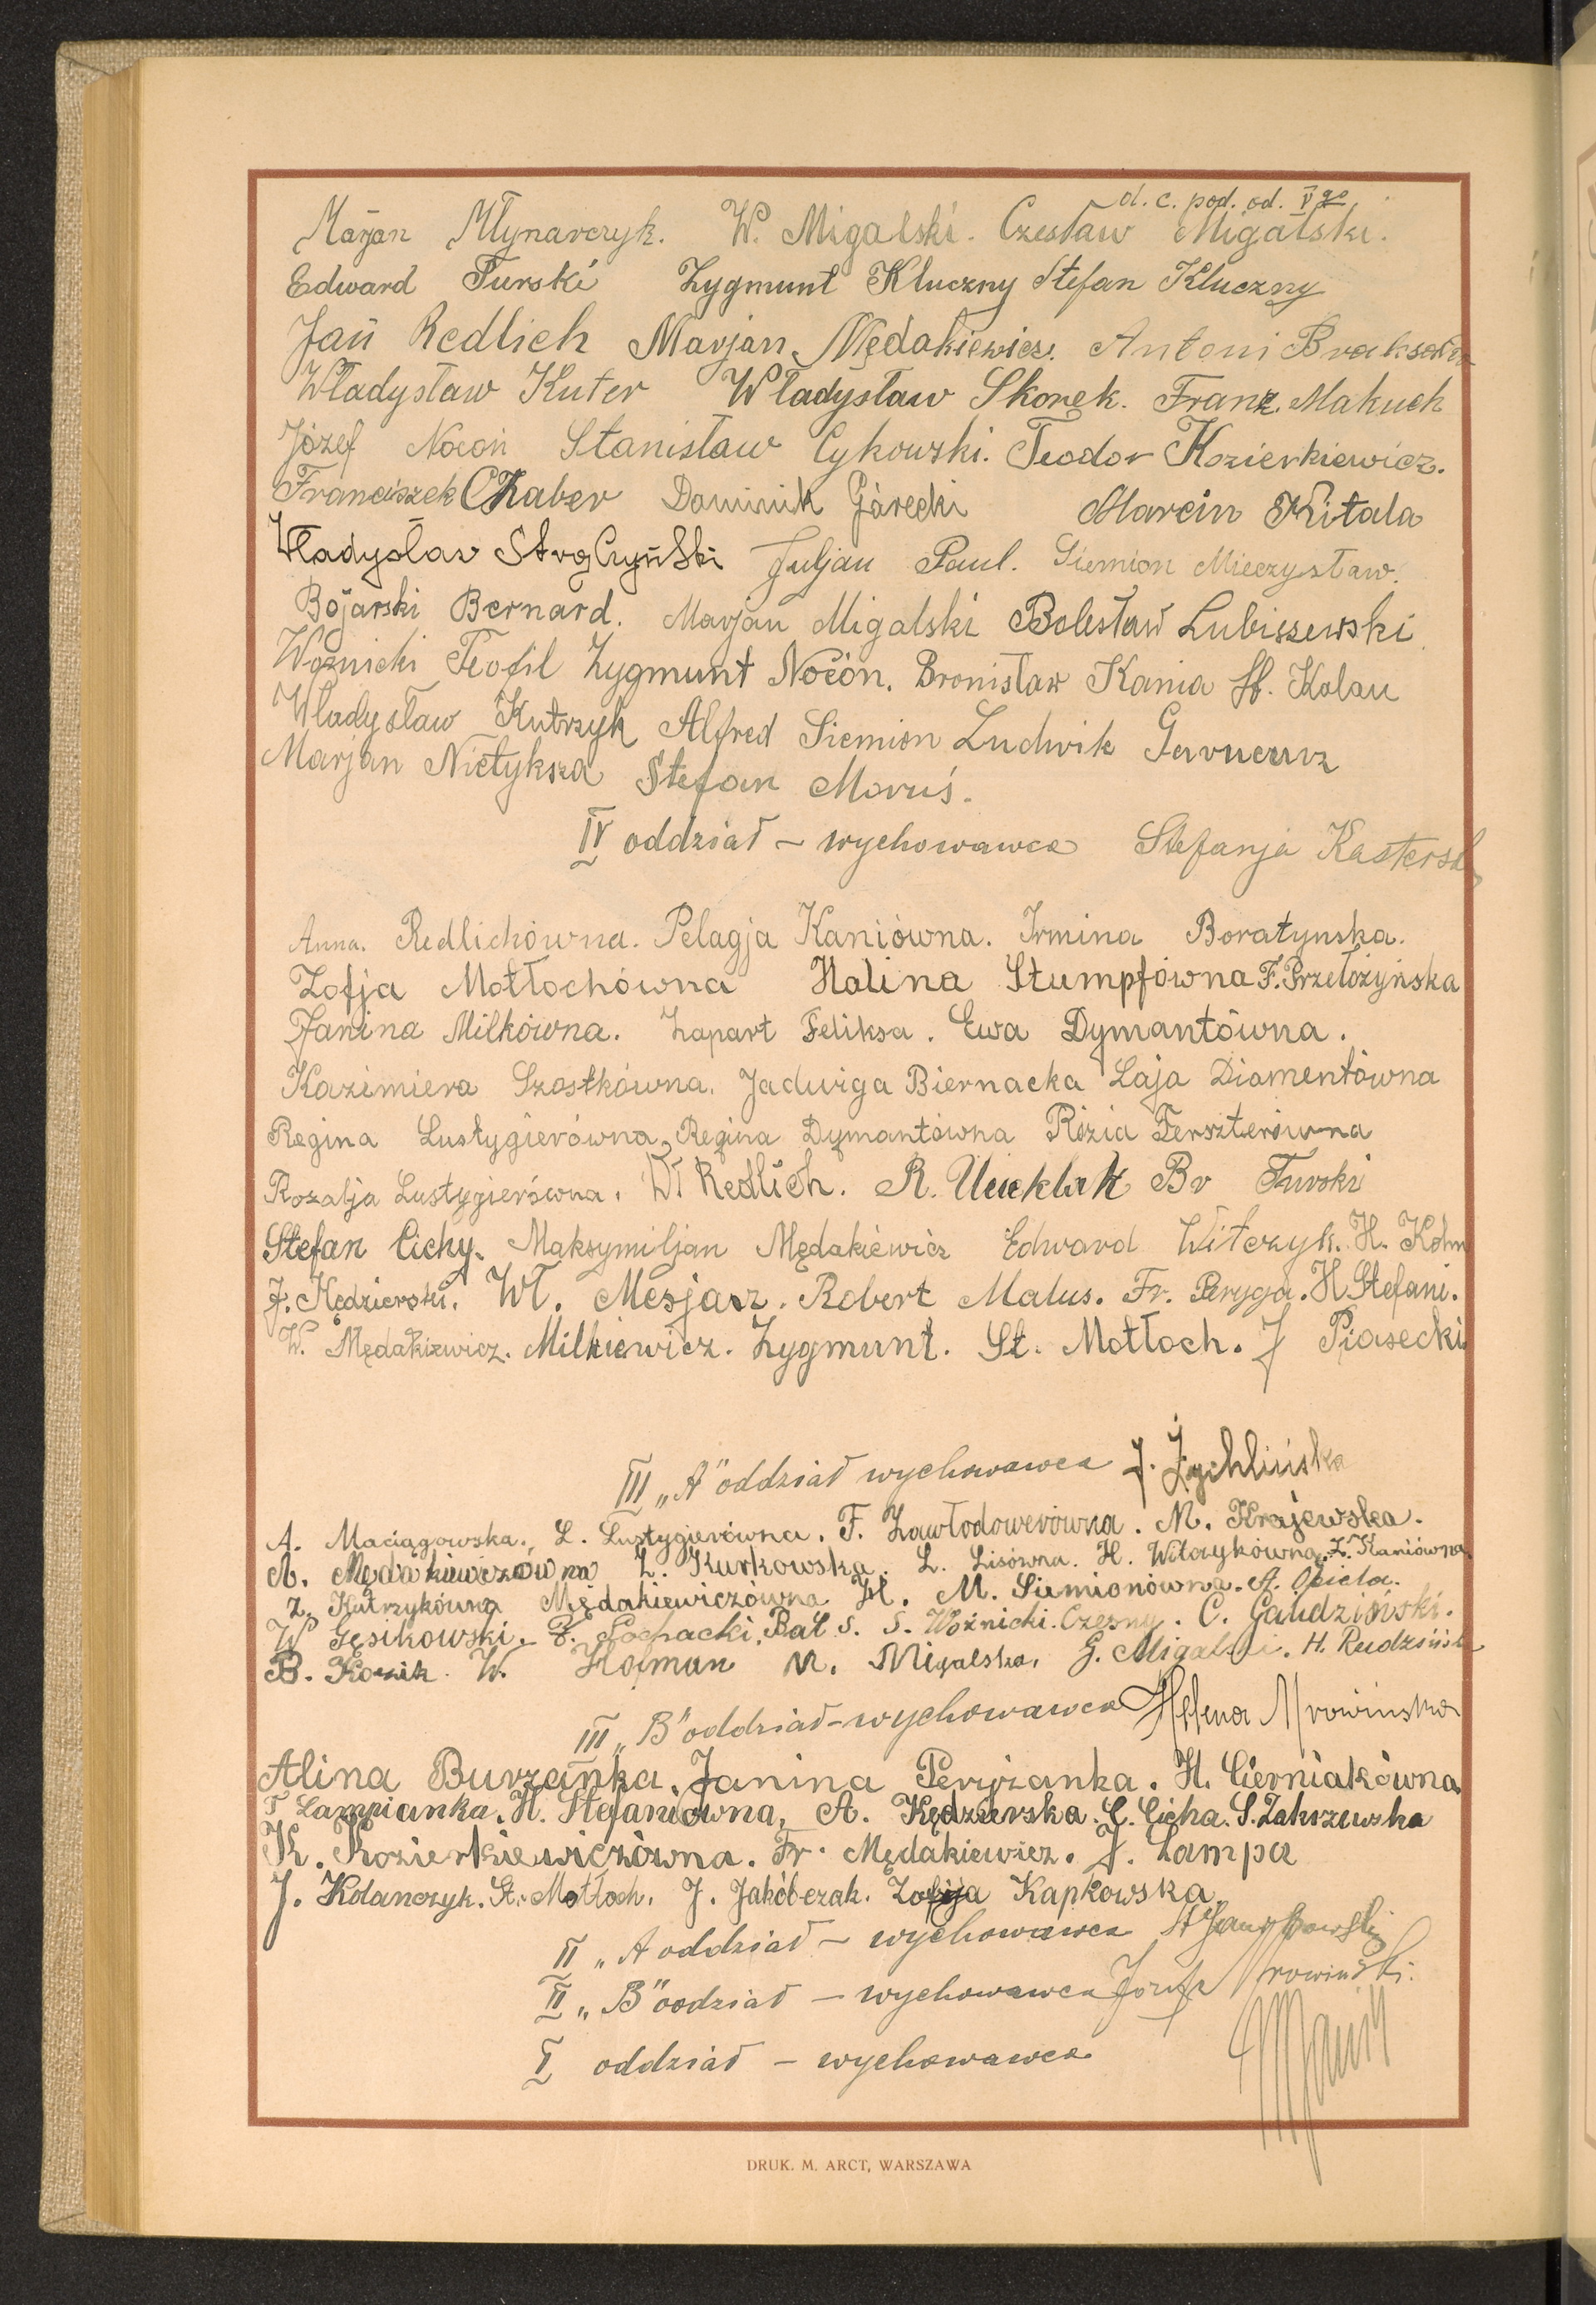 d. c. pod. od. V go.
Marjan Młynarczyk. W. Migalski. Czesław Migalski.
Edward Turski Zygmunt Kluczny Stefan Kluczny
Jan Redlich Marjan Mędakiewicz. Antoni
Władysław Kuter Władysław Skorek. Franz. Makuch
Józef Nocoń Stanisław Cykowski. Teodor Kozierkiewicz.
Franciszek Chaber Dominik Górecki Marcin Kitala
Władysław Juljan Paul. Siemion Mieczysław.
Bojarski Bernard. Marjan Migalski Bolesław Lubiszewski
Woźnicki Teofil Zygmunt Nocoń. Bronisław Kania St. Kolan
Władysław Kutrzyk Alfred Siemion Ludwik
Marjan Nietyksza Stefan Moruś.
IV oddział – wychowawca Stefanja
Anna. Redlichówna. Pelagja Kaniówna. Irmina Boratynska.
Zofja Motłochówna Halina Stumpfówna F. Przełożyńska
Janina Milkówna. Zapart Feliksa. Ewa Dymantówna.
Kazimiera Szostkówna. Jadwiga Biernacka Laja Diamentówna
Regina Lustygierówna, Regina Dymantówna Rózia Ferszterówna
Rozalja Lustygierówna. Wł Redlich. R. Br Turski
Stefan Cichy. Maksymiljan Mędakiewicz Edward Witczyk. H. Kohn
J. Kędzierski. Wł. Mesjasz. Robert Malus. Fr. Peryga. H. Stefani.
W. Mędakiewicz. Milkiewicz. Zygmunt. St. Motłoch. J Piasecki
III „A" oddział wychowawca J. Żychlińska
A. Maciągowska., L. Lustygierówna. F. Zawłodowerówna. M. Krajewska.
A. Mędakiewiczówna Z. Kurkowska. L. Lisówna. H. Witczykówna. Z. Kaniówna.
Z. Kutrzykówna Mędakiewiczówna H. M. Siemionówna. A. Opiela.
W Gęsikowski. F. Pochacki, Rał S. S. Woźnicki. Czesny. C. Gaudziński.
B. Kozik. W. Hofman M. Migalska. G. Migalski. H.
III „B" oddział – wychowawca Helena Mrowińska
Alina Burzanka. Janina Peryżanka. H. Cierniakówna
T Lampianka. H. Stefaniówna, A. Kędzierska. C. Cicha. S. Zakrzewska
K. Kozierkiewiczówna. Fr. Mędakiewicz. J. Lampa
J. Kolanczyk. St. Motłoch. J. Jakóbczak. Zofja Kapkowska.
II „A oddział – wychowawca
II „B" oodział – wychowawca Józef Mrowiński.
I oddział – wychowawca
DRUK. M. ARCT, WARSZAWA